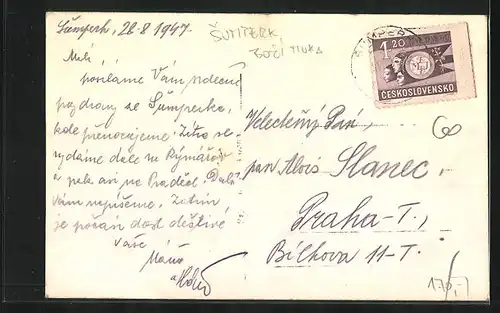 Šumperk, 28.8 1947.
Milí,
posíláme Vám srdečné
pozdravy ze Šumperka,
kde přenocujeme. Zítra se
vydáme dále na Rýmařov
a pak asi na Praděd. Další
Vám napíšeme. Zatím
je počasí dost deštivé.
Vaše
Máňa
a
ŠUMPERK
BOŽÍ MUKA
ŠUMPER
1.20
ČESKOSLOVENSKO
60
Velectěný Pán,
pan Alois Slanec,
Praha-I.,
Bílkova 11-I.
170,-